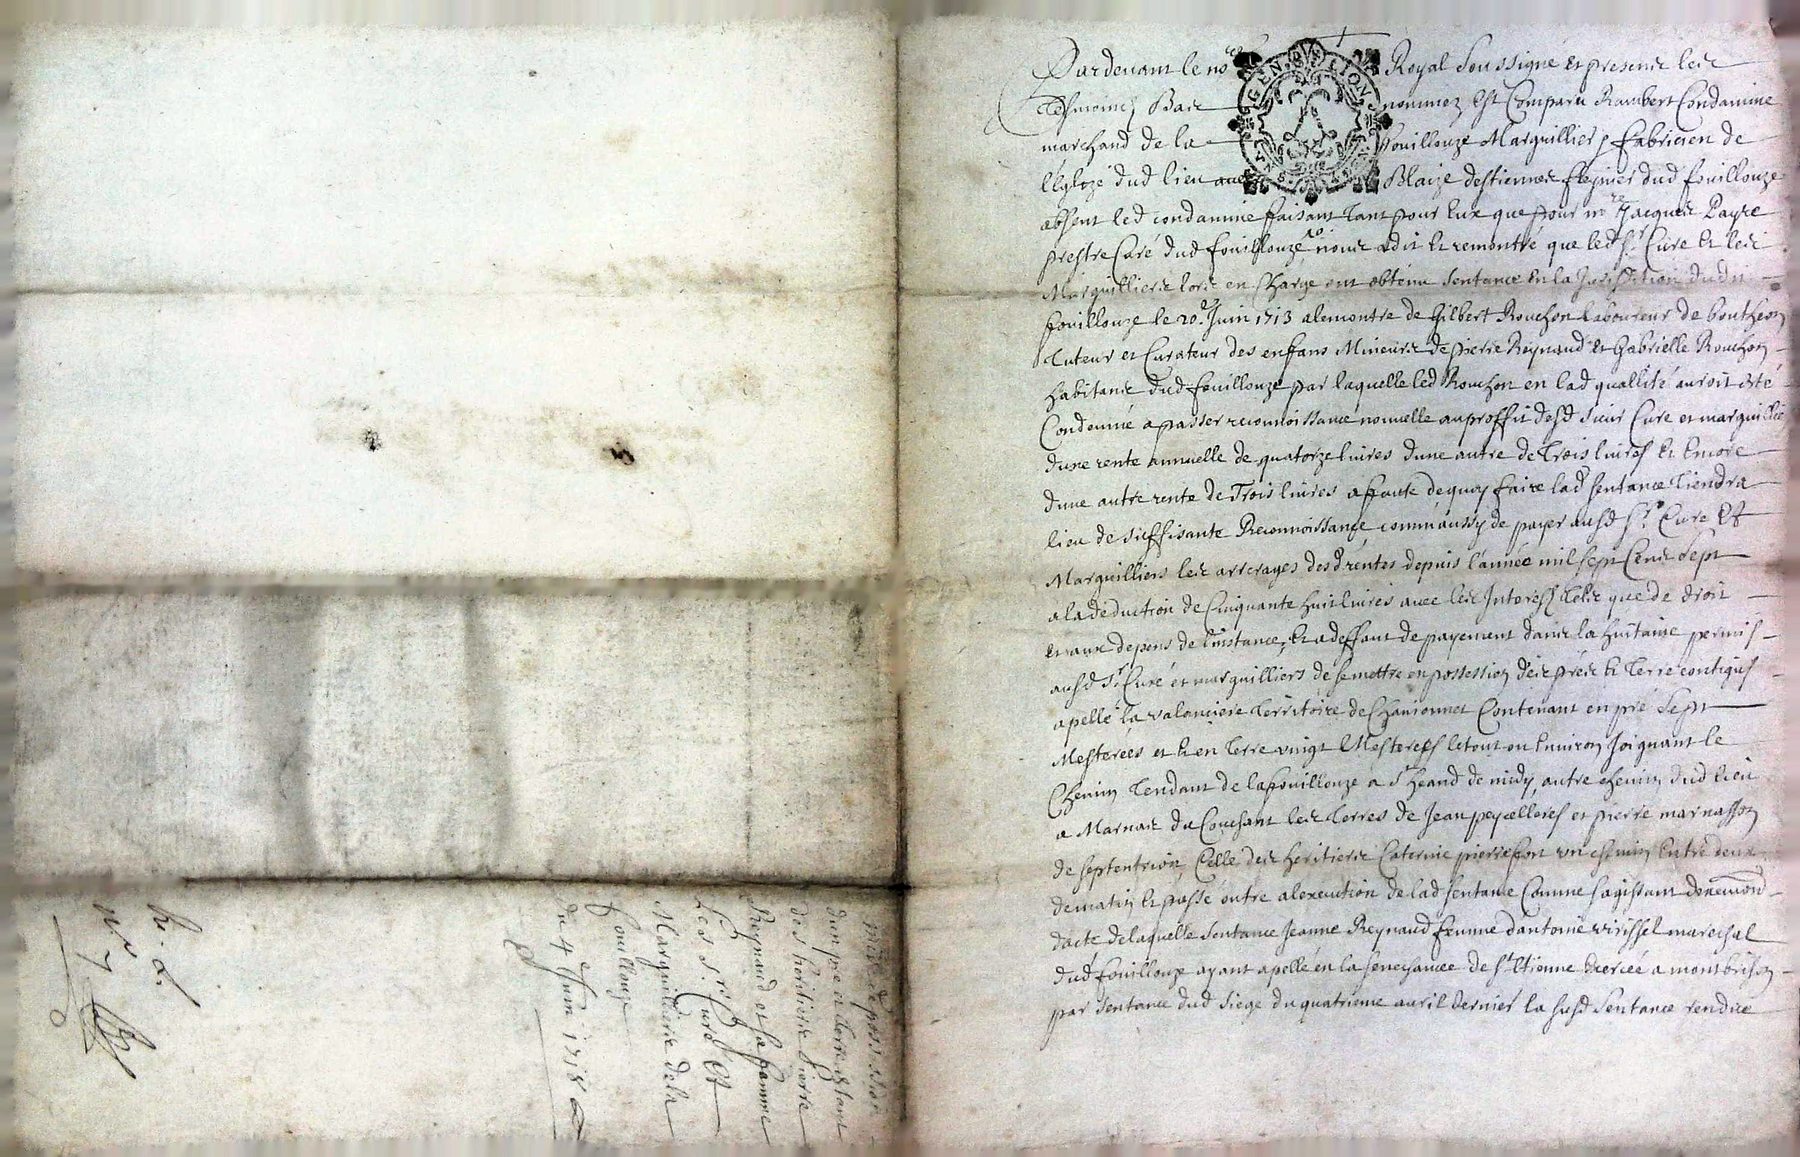 Pardevant le no.re Royal Soussigné et presens les
tesmoins Bas nommez Est Comparu Rambert Condamine
marchand de la fouillouze Marguillier, fabricien de
l'Eglize dud lieu avec Blaize destienne fleynier dud fouillouze
absent led condamine faisant tant pour luy que pour m.re Jacques Payre
prestre Curé dud fouillouze nous a dit et remontré que led Sr. Curé et les
Marguilliers lors en Charge ont obtenu sentance en la Jurisdition dudit
fouillouze le 20.e Juin 1713 alemontre de Gilbert Rouchon laboureur de bouthéon
tuteur et Curateur des enffans Mineurs de pierre Reynaud et Gabrielle Rouchon
habitans dud fouillouze par laquelle led Rouchon en lad quallité auroit esté
Condamné a passer reconnoissance nouvelle au proffit desd sieur Curé et marguillier
dune rente annuelle de quatorze livres dune autre de trois livres et encore
dune autre rente de trois livres a faute dequoy faire lad sentance tiendra
lieu de suffisante Reconnoissance comm'aussy de payer ausd Sr. Curé et
Marguilliers les arrerages desd rentes depuis l'année mil sept Cens sept
a la déduction de Cinquante huit livres avec les Interests tels que de droit
et aux depens de l'instance, et a deffaut de payement dans la huitaine permis
ausd Sr Curé et marguilliers de se mettre en possession des prés et terre contigus
apellé la valonciere territoire de Chavonnet Contenant en pré sept
Mesterées et en terre vingt Mesterées le tout ou environ joignant le
Chemin tendant de la fouillouze a St heand de midy, autre chemin dud lieu
a Marnas du Couchant les terres de Jean peycelleres et pierre marnasson
de septentrion, Celle des heritiers Caterine pierrefon un chemin entre deux
de matin et passé outre a l'execution de lad sentance Comme sagissant
dacte de laquelle sentance Jeanne Reynaud femme d'antoine virissel marechal
dud fouillouze ayant apellé en la senechaucée de St Etienne Exercée a montbrison
par sentance dud siege du quatrieme avril dernier la susd sentance rendüe
GEN. LION
mise de possession
dun pré et terre estant
des heritiers pierre
Reynaud et sa femme
Les Sr. Curé et
Marguilliers de la
fouillouze
du 4e Juin 1718
n° 7